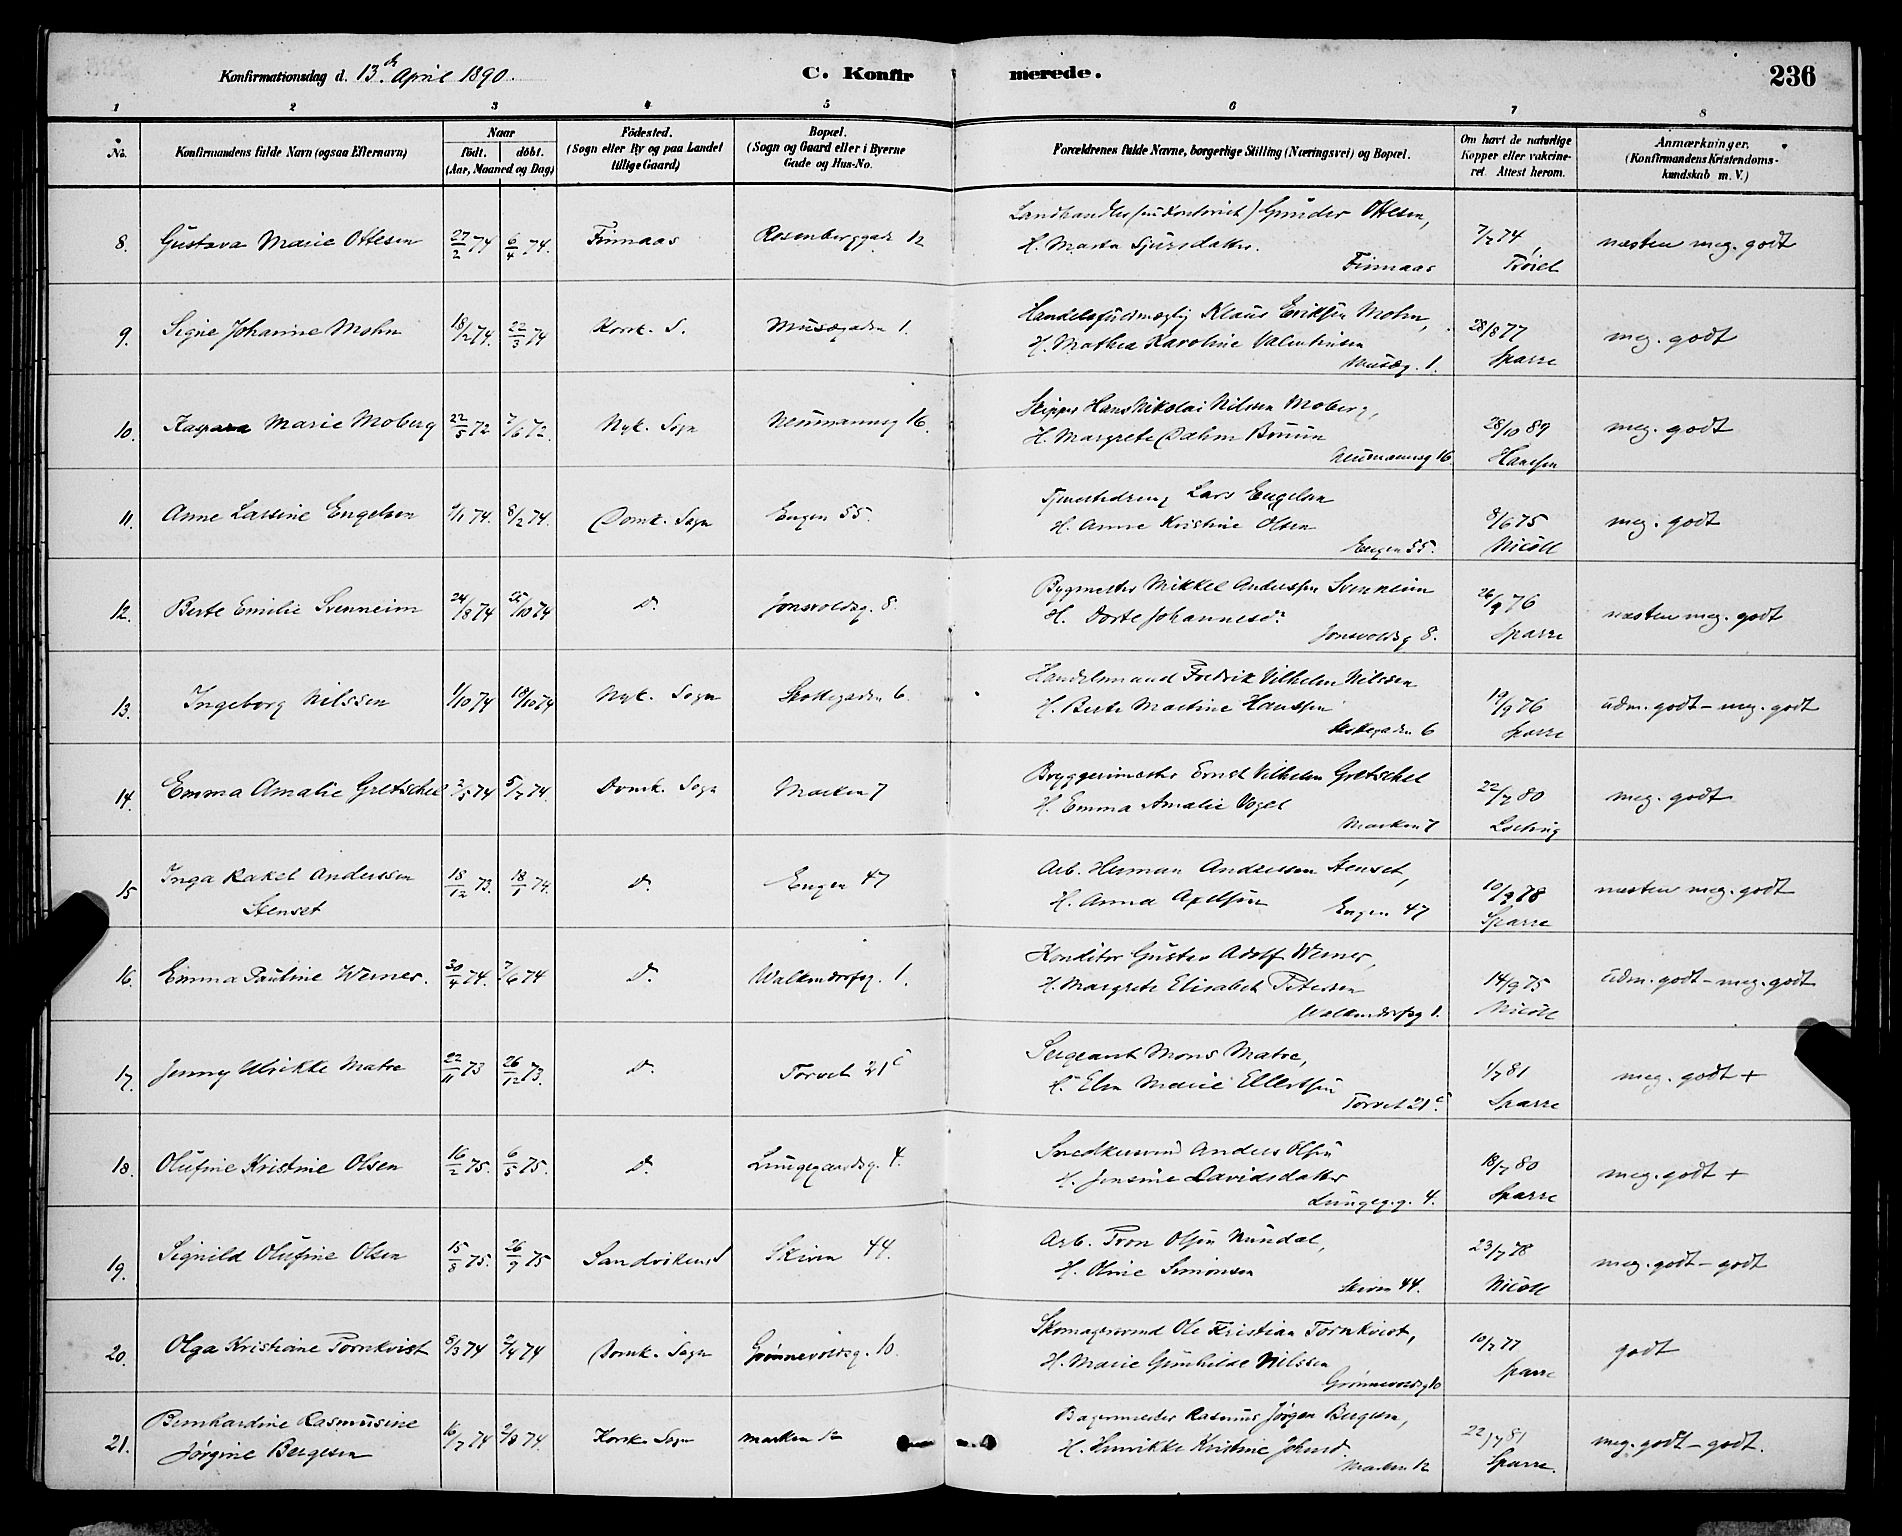 Konfirmationsdag d. 13de April 1890.
C. Konfirmerede.
236
1 2 3 4 5 6 7 8
No.
Konfirmandens fulde Navn (ogsaa Efternavn)
Naar
födt. döbt.
(Aar, Maaned og Dag)
Födested.
(Sogn eller By og paa Landet
tillige Gaard)
Bopæl.
(Sogn og Gaard eller i Byerne
Gade og Hus-No.
Forældrenes fulde Navne, borgerlige Stilling (Næringsvei) og Bopæl.
Om havt de naturlige
Kopper eller vakcine-
ret. Attest herom.
Anmærkninger.
(Konfirmandens Kristendoms-
kundskab m. V.)
8. Gustava Marie Ottesen 27/2 74 6/4 74. Finnaas Rosenberggad. 12
Landhandler Gunder Ottesen,
H. Marta Sjursdatter.
Finnaas
7/7 74,
næsten meg. godt
9. Signe Johanne Mohn 18/2 74. 22/3 74 Korsk. S. Musægaden 1.
Handelsfuldmægtig Klaus Mohn,
H. Mathea Karoline Valentinsen
Musæg. 1.
28/8 77
Sparre
meg. godt
10. Kaspara Marie Moberg 22/5 72 7/6 72. Nyk. Sogn Neumannsg 16.
Skipper Hans Nikolai Nilssen Moberg,
H. Margrete Dahm Bruun
Neumannsg 16
28/10 89
Hanssen
meg. godt
11. Anne Lassine Engelsen 1/1 74. 8/2 74. Domk. Sogn Engen 55.
Tjenestedreng Lars Engelsen
H. Anne Kristine Olsen
Engen 55.
8/6 75
Nicoll
meg. godt
12. Berte Emilie Svenneim 24/8 74 25/10 74 D. Jonsvoldsg. 8.
Bygmester Mikkel Anderssen Svenneim
H. Dorte Johannesdr
Jonsvoldsg 8.
26/9 76
Sparre
næsten meg. godt
13. Ingeborg Nilssen 1/10 74 18/10 74 Nyk. Sogn Skottegaden 6.
Handelsmand Fredrik Vilhelm Nilssen
H. Berte Martine Hanssen
Skottegaden 6
19/9 76
Sparre
udm. godt - meg. godt
14. Emma Amalie Gretschel 3/5 74 5/7 74. Domk. Sogn Marken 7
Bryggerimester Ernst Vilhelm Gretschel
H. Emma Amalie Vogel
Marken 7
22/7 80
meg. godt
15 Inga Rakel Anderssen
Stenset
15/12 73. 18/1 74. D. Engen 47
Arb. Herman Anderssen Stenset,
H. Anna Axelsen Engen 47
10/9 78
Sparre
næsten meg. godt
16. Emma Pauline Werner. 30/4 74. 7/6 74 D. Walkendorfsg. 1.
Konditor Gustav Adolf Werner,
H. Margrete Elisabet Petersen
Walkendorfsg 1.
14/9 75
Nicoll
udm. godt - meg. godt
17. Jenny Ulrikke Matre 22/11 73 26/12 73. D. Torvet 21c
Sergeant Mons Matre,
H. Elen Marie Ellertsen
Torvet 21c.
1/7 81
Sparre
meg. godt +
18. Olufine Kristine Olsen 16/2 75. 6/5 75. D. Lungegaardsg. 4.
Snedkersvend Anders Olsen
H. Jensine Davidsdatter
Lungegg. 4.
18/7 80
Sparre
meg. godt +
19. Signild Olufine Olsen 15/8 75. 26/9 75 Sandvikens Skiven 44.
Arb. Tron Olsen Nundal,
H. Oline Simonsen
Skiven 44.
23/7 78
Nicoll
meg. godt - godt
20. Olga Kristiane Tornkvist 8/3 74 2/4 74 Domk. Sogn Grønnevoldsg. 10.
Skomagersvend Ole Kristian Tornkvist,
H. Marie Gunhilde Nilssen
Grønnevoldsg 10
10/7 77
Sparre
godt
21. Bernhardine Rasmusine
Jørgine Bergesen
16/7 74 2/8 74. Korsk. Sogn Marken 12
Bagermester Rasmus Jørgen Bergesen,
H. Henrikke Kristine
Marken 12
22/7 81
Sparre.
meg. godt - godt.